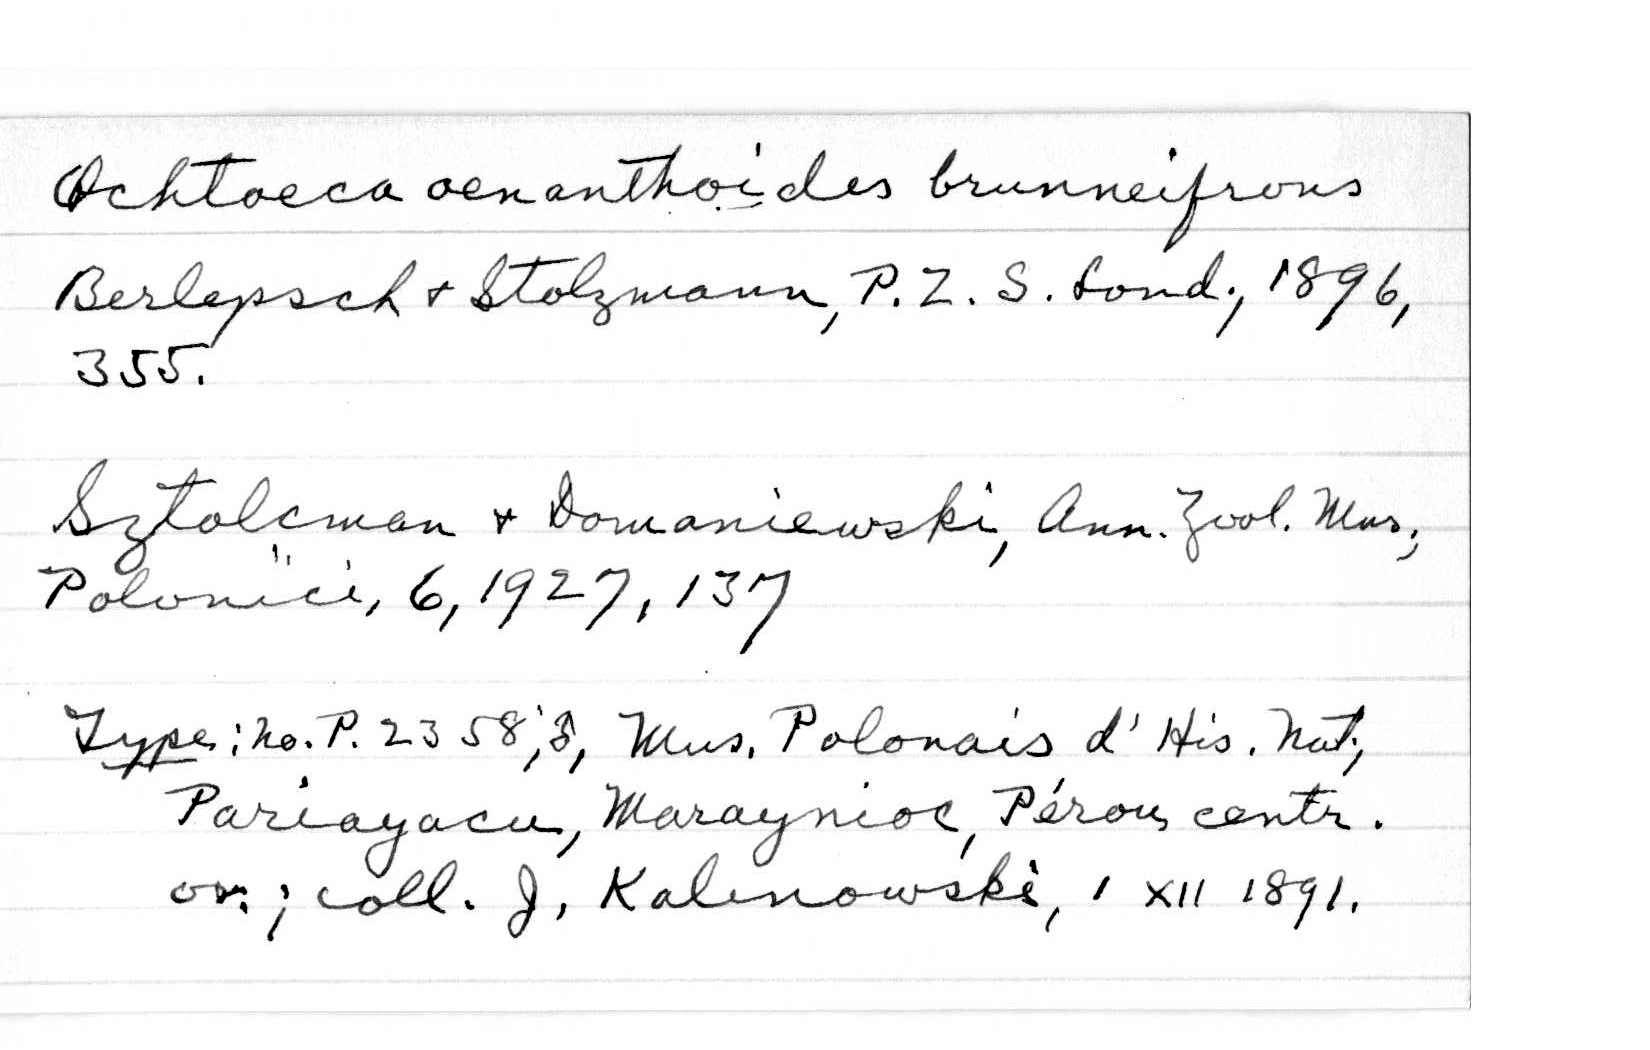 Ochtoeca oenanthoides brunneifrons
Berlepsch & Stolzmann, P. Z. S. Lond., 1896,
355.
Sztolcman & Domaniewski, Ann. Zool. Mus.,
Polonici, 6, 1927, 137
Type: No. P. 2358; ♂, Mus. Polonais d' His. Nat.,
Pariayacu, Maraynioc, Pérou centr.
or.; coll. J. Kalinowski, 1 XII 1891.